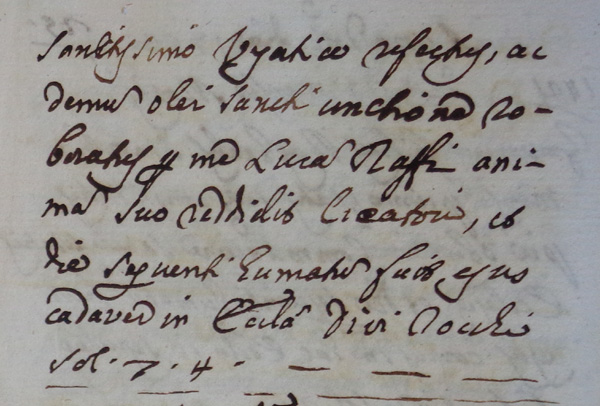 sanctissimo Vyatico refectus, ac
demu olei Sancti unctione ro-
boratus p me Luca Raffi ani-
ma suo reddidit Creatori, et
die sequenti humatu fuit ejus
cadaver in Eccla Divi Rochi
sol. 7. 4.